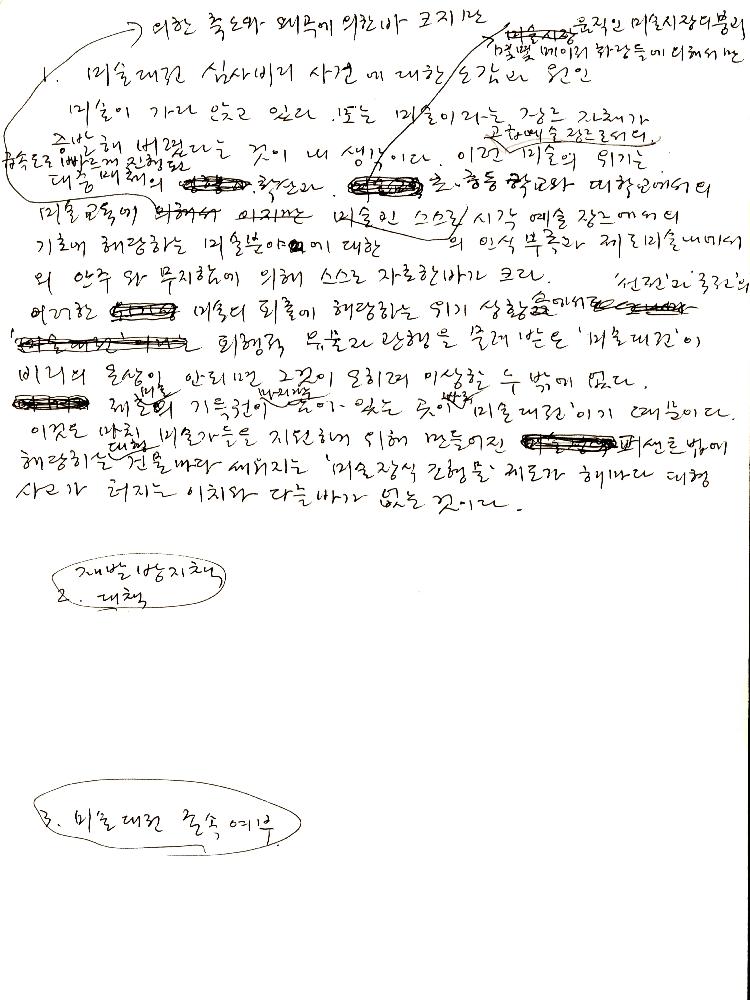 의한 축소와 왜곡에 의한바 크지만
음직인 미술시장의 붕괴
몇몇 메이저 화랑들에 의해서만
1. 미술대전 심사비리 사건에 대한 소감과 원인
미술이 가라 앉고 있다. 또는 미술이라는 장르 자체가
증발해 버렸다는 것이 내 생각이다. 이런 미술의 위기는
급속도로 빠르게 진행된
순수예술 장르로서의
대중매체의 확산과 초.중등 학교와 대학교에서의
미술교육에 의해서 이지만 미술인 스스로 시각 예술 장르에서의
기초에 해당하는 미술분야에 대한 의 인식 부족과 제도미술내에서
의 안주와 무지함에 의해 스스로 자초한바가 크다.
'선전'과 '국전'의
이러한 미술의 퇴출에 해당하는 위기 상황 속에서도
퇴행적 유물과 관행을 물려 받은 '미술대전'이
비리의 온상이 안되면 그것이 오히려 이상할 수 밖에 없다.
제도의 미술 기득권이 마지막 남아 있는 곳이 바로 '미술대전'이기 때문이다.
이것은 마치 미술가들을 지원하기 위해 만들어진 퍼센트법에
해당하는 대형 건물마다 세워지는 '미술장식 조형물' 제도가 해마다 대형
사고가 터지는 이치와 다를바가 없는 것이다.
재발방지책
2. 대책
3. 미술대전 존속 여부